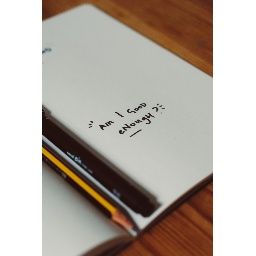 Am I Good
eNough?